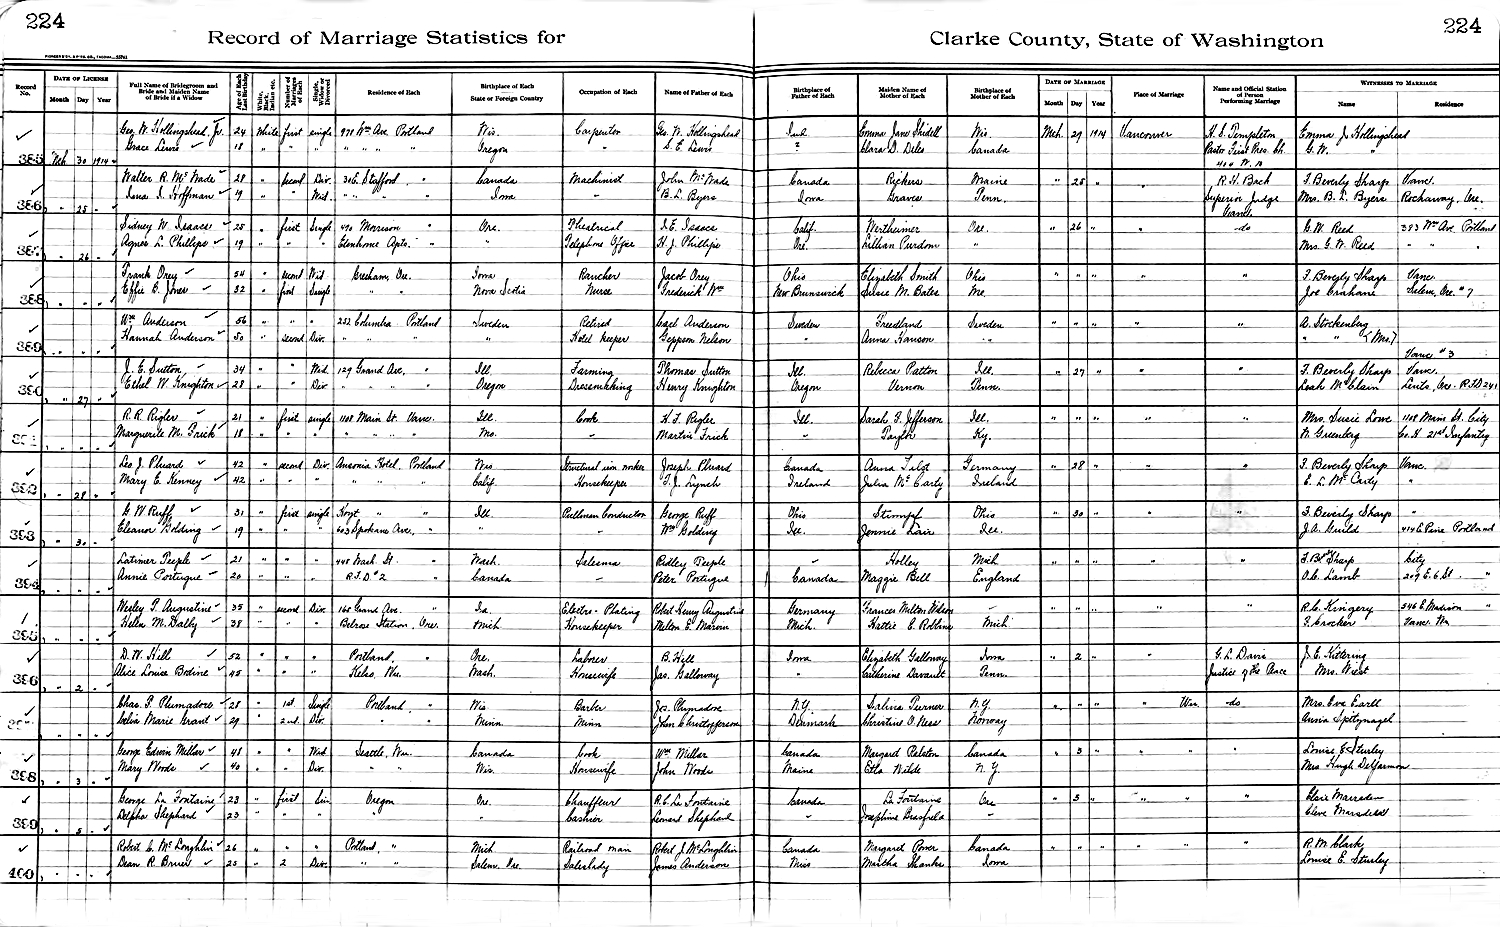 224
224
Record of Marriage Statistics for
Clarke County, State of Washington
Record No.
DATE OF LICENSE
Month Day Year
Full Name of Bridegroom and Bride and Maiden Name of Bride if a Widow
Age of Each Last Birthday
White, Black, Indian etc.
Number of Marriages of Each
Single, Widow or Divorced
Residence of Each
Birthplace of Each
State or Foreign Country
Occupation of Each
Name of Father of Each
Birthplace of Father of Each
Maiden Name of Mother of Each
Birthplace of Mother of Each
DATE OF MARRIAGE
Month Day Year
Place of Marriage
Name and Official Station of Person Performing Marriage
WITNESSES TO MARRIAGE
Name Residence
Geo. W. Hollingshead, Jr. 24 White first single Portland Wis. Carpenter Geo. W. Hollingshead Ind Emma Jane Wis. Mch. 29 1914 Vancouver H. S. Templeton Emma J. Hollingshead
Grace Lewis 18 " " " " " Oregon " S. E. Lewis ? Clara D. Canada Pastor First Pres. Ch. G. W. "
385 Mch 30 1914
Walter R. McWade 28 " second Div. 306 Stafford " Canada Machinist John McWade Canada Rickers Maine " 25 " " R. H. Back F. Beverly Sharp Vanc.
Hoffman 19 " " Wid. " " " Iowa B. L. Byers Iowa Graves Penn. Superior Judge Mrs. B. L. Byers Rockaway, Ore.
386 " 25 " Vanc.
Sidney W. Isaacs 25 " first Single 490 Morrison " Ore. Theatrical I. E. Isaacs Calif. Wertheimer Ore. " 26 " " do G. W. Reed 383 Wm Ave. Portland
Agnes L. Phillips 19 " " " Glenhome Apts. " " Telephone Office H. J. Phillips Ore. Lillian Purdom " Mrs. G. W. Reed " " "
" 26 "
Frank Orey 54 " second Wid. Gresham, Ore. Iowa Rancher Jacob Orey Ohio Elizabeth Smith Ohio " " " " " F. Beverly Sharp Vanc.
Effie E. Jones 32 " first Single " " Nova Scotia Nurse Frederick Wm New Brunswick Susie M. Bates Me. Joe Salem, Ore. #7
388 " " "
Wm Anderson 56 " " " 232 Columbia Portland Sweden Retired Carl Anderson Sweden Freedland Sweden " " " " " A. Stockenberg
Hannah Anderson 50 " second Div. " " " Hotel keeper Nelson " Anna Hanson " " " (Mrs.)
389 " " " Vanc #3
J. E. Sutton 34 " " Wid. 129 Grand Ave. " Ill. Farming Thomas Sutton Ill. Rebecca Patton Ill. " 27 " " " F. Beverly Sharp Vanc.
Ethel W. Knighton 28 " " Div " " " Oregon Dressmaking Henry Knighton Oregon Vernon Penn. Leah McClain Lents, Ore. R.F.D 241
390 " 27 "
R. R. Rigler 21 " first single 1108 Main St. Vanc. Ill. Cook H. F. Rigler Ill. Sarah F. Jefferson Ill. " " " " " Mrs. Susie Lowe 1108 Main St. City
Marguerite M. Frick 18 " " " " " " Mo. " Martin Frick " Taylor Ky. N. Greenberg Co. H 21st Infantry
391 " " "
Leo J. Pluard 42 " second Div. Ansonia Hotel, Portland Wis Structural iron worker Joseph Pluard Canada Anna Germany " 28 " " " F. Beverly Sharp Vanc.
Mary E. Kenney 42 " " " " " " Calif. Housekeeper T. J. Lynch Ireland Julia McCarty Ireland E. L. McCarty "
392 " 28 "
G. W. Ruff 31 " first single Hoyt " Ill. Pullman Conductor George Ruff Ohio Stumpf Ohio " 30 " " " F. Beverly Sharp "
Eleanor Golding 19 " " " 603 Spokane Ave. " " " Wm Golding Ill. Jennie Lair Ill. J. A. Guild 414 E Pine Portland
393 " 30 "
Latimer Peeple 21 " " " 448 Wash St. " Wash. Salesman Ridley Peeple " Holley Mich " " " " " Sharp City
Annie Portugue 20 " " " R.F.D #2 " Canada " Peter Portugue Canada Maggie Bell England O. C. Lamb 209 E. 6 St. "
394 " " "
Wesley P. Augustine 35 " second Div. 160 Grand Ave. " Ia. Electro-Plating Robert Henry Augustine Germany Frances Milton Wilson " " " " " " R. C. Kingery 546 E Madison "
Helen M. Dalby 38 " " " Belrose Station, Ore. Mich Housekeeper Milton E. Marvin Mich. Hattie E. Robbins Mich F. Crocker Vanc. Wn
395 " " "
D. W. Hill 52 " " " Portland, " Ore. Laborer B. Hill Iowa Elizabeth Galloway Iowa " 2 " " G. L. Davis J. E. Kittering
Alice Louise Bodine 45 " " " Kelso, Wn. Wash. Housewife Jas. Galloway " Catherine Davault Penn. Justice of the Peace Mrs. West
396 " 2 "
Chas. P. Plumadore 28 " 1st Single Portland " Wis Barber Jos. Plumadore N.Y. Salina Turner N.Y. " " " " Wn. do Mrs. Eva Earll
Marie Grant 29 " 2nd Div. " " Minn Minn John Christofferson Denmark Christine O. Ness Norway Annia Spittynagel
" " "
George Edwin Millar 48 " " Wid Seattle, Wn. Canada Cook Wm Millar Canada Margaret Ralston Canada " 3 " " " " Louise E. Sturley
Mary Woods 40 " " Div. " " Wis. Housewife John Woods Maine Etta Wilde N.Y. Mrs Hugh DeJarmon
398 " 3 "
George La Fontaine 23 " first Sin Oregon Ore. Chauffeur R. C. La Fontaine Canada La Fontaine Ore " 5 " " " " Clair Marsden
Delpha Shephard 23 " " " " " Cashier Leonard Shephard " Josephine Brasfield " Cleve Marsden
399 " 5 "
Robert C. McLoughlin 26 " " " Portland, " Mich Railroad man Robert J. McLoughlin Canada Margaret Power Canada " " " " " " R. M. Clark
Dean R. Bruce 25 " 2 Div. " " Salem, Ore. Saleslady James Anderson Miss Martha Shanks Iowa Louise E. Sturley
400 " " "